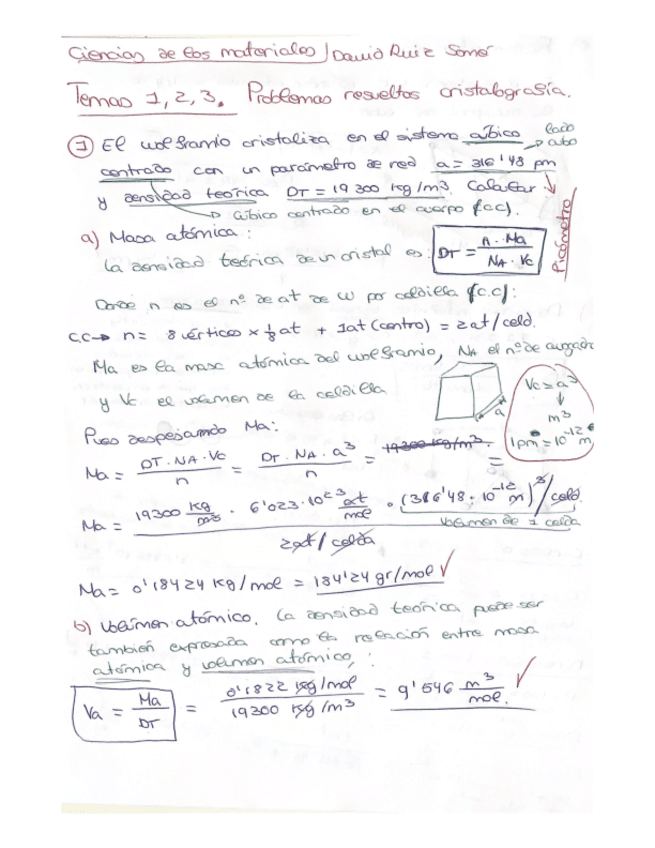 Ciencias de los materiales / David Ruiz
Temas 1, 2, 3. Problemas resueltos cristalografía.
① El wolframio cristaliza en el sistema cúbico → lado cubo
centrado con un parámetro de red a = 316'48 pm
y densidad teórica DT = 19 300 kg/m³. Calcular
→ Cúbico centrado en el cuerpo (cc).
Picómetro
a) Masa atómica:
La densidad teórica de un cristal es: DT = n · Ma / NA · Vc
Donde n es el nº de at de W por celdilla (c.c):
c.c → n = 8 vértices × 1/8 at + 1 at (centro) = 2 at / celd.
Ma es la masa atómica del wolframio, NA el nº de avogadro
y Vc el volumen de la celdilla
a
Vc = a³
↓
m³
1 pm = 10⁻¹² m
Pues despejando Ma:
Ma = DT · NA · Vc / n = DT · NA · a³ / n = 19300 kg/m³ =
Ma = 19300 kg/m³ · 6'023 · 10²³ at/mol · (316'48 · 10⁻¹² m)³ / celd.
volumen de 1 celda
2 at / celda
Ma = 0'18424 kg/mol = 184'24 gr/mol ✓
b) Volumen atómico. La densidad teórica puede ser
también expresada como la relación entre masa
atómica y volumen atómico, :
Va = Ma / DT = 0'1822 kg/mol / 19300 kg/m³ = 9'546 m³/mol. ✓